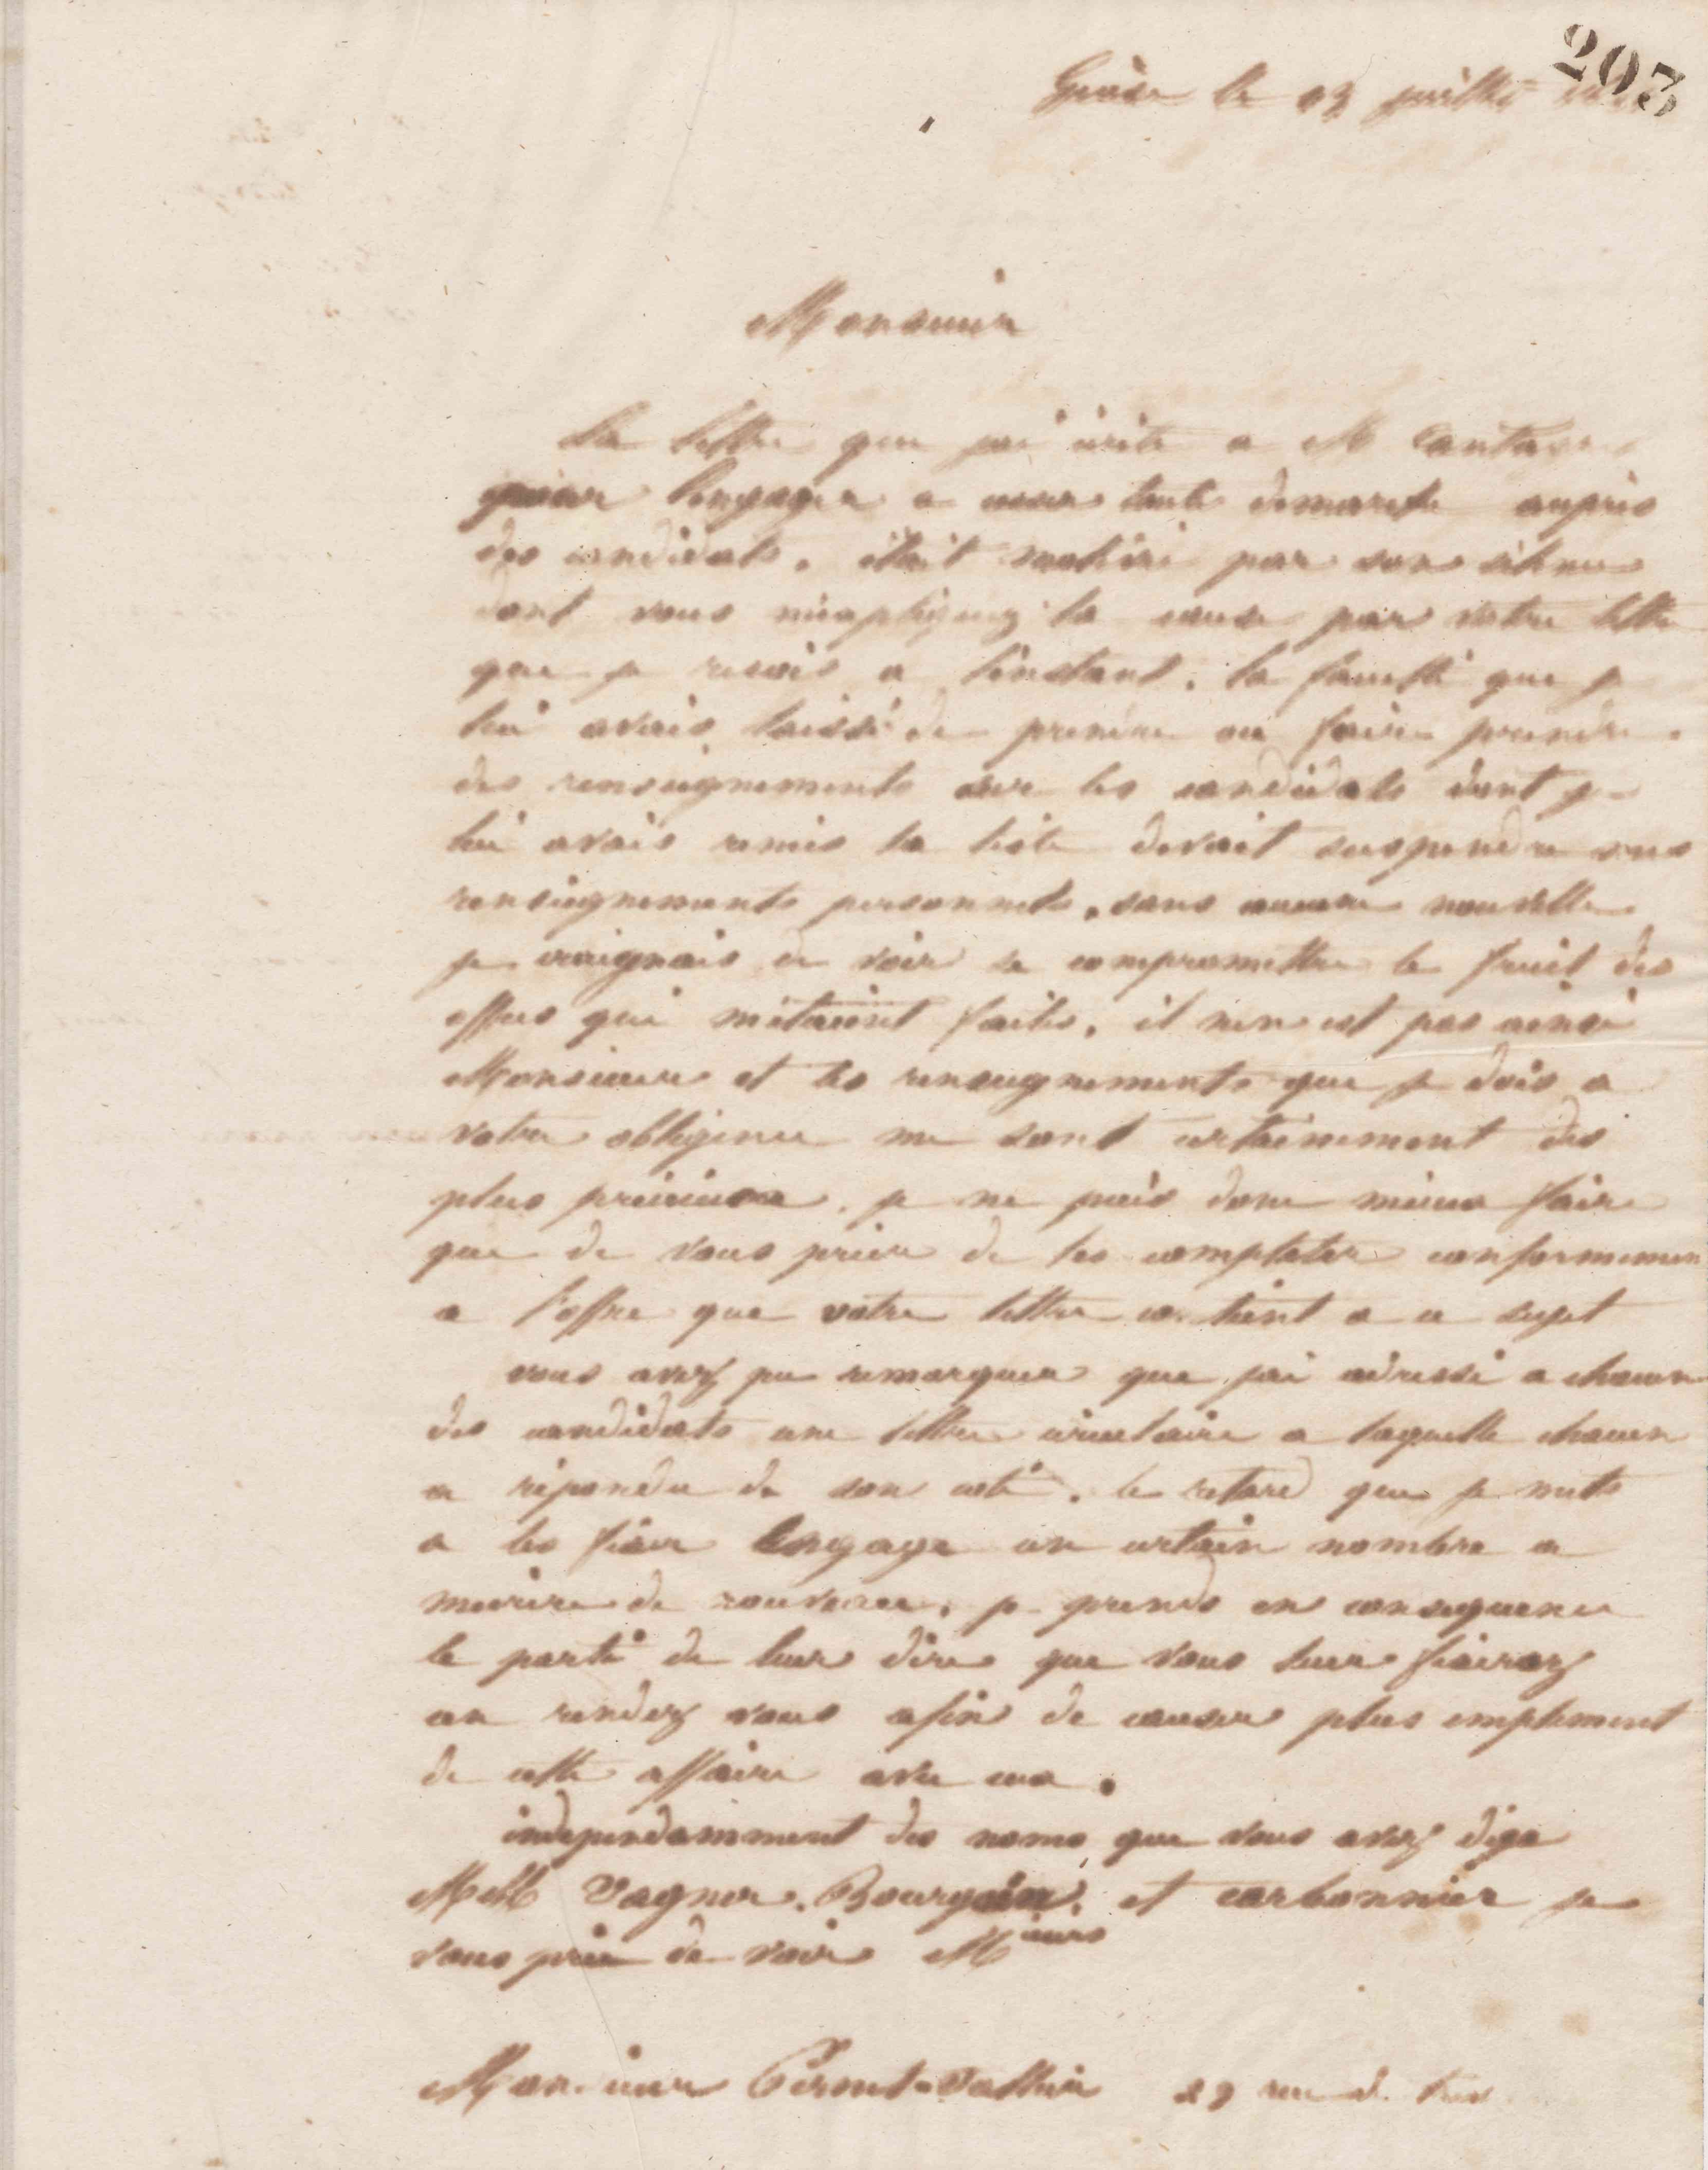 203
Guise le 13 juillet
Monsieur
La lettre que jai écrite a M Cantagrel
pour l'engager a cesser toute demarche auprès
des candidats, était motivé par son silence
dont vous m'expliquez la cause par votre lettre
que je reçois a l'instant. la faculté que je
lui avais laissé de prendre ou faire prendre
des renseignements sur les candidats dont je
lui avais remis la liste devait suspendre mes
renseignements personnels, sans aucune nouvelle
je craignais de voir se compromettre le fruit des
offres qui m'étaient faites. il n'en est pas ainsi
Monsieur et les renseignements que je dois a
votre obligence me sont certainement des
plus précieux. je ne puis donc mieux faire
que de vous prier de les completer conformement
a l'offre que votre lettre contient a ce sujet
vous avez pu remarquer que jai adressé a chacun
des candidats une lettre circulaire a laquelle chacun
a répondu de son coté. le retard que je mets
a les fixer engage un certain nombre a
mécrire de nouveau. je prends en consequence
le parti de leur dire que vous leur fixerez
un rendez vous afin de causer plus emplement
de cette affaire avec eux.
independamment des noms que vous avez deja
MM Vagner. Bourgoin. et carbonnier je
vous prie de voir Mieurs
Monsieur 29 rue de